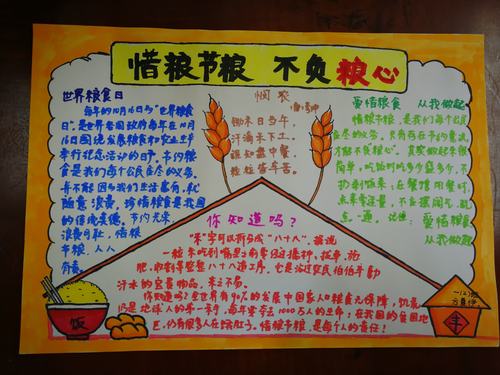 惜粮节粮 不负粮心
世界粮食日
每年的10月16日为"世界粮食
日"。是世界各国政府每年在10月
16日围绕发展粮食和农业生产
举行纪念活动的日子。节约粮
食是我们每个公民应尽的义务,
并不能因为我们生活富有,就
随意浪费,珍惜粮食是我国
的传统美德。节约光荣,
浪费可耻,惜粮
节粮,人人
有责。
悯农
锄禾日当午,
汗滴禾下土。
谁知盘中餐,
粒粒皆辛苦。
爱惜粮食 从我做起
惜粮节粮,是我们每个公民
应尽的义务。
简单,吃饭时吃多少盛多少,不
扔剩饭菜,在餐馆用餐时,
点菜要适量,不应摆阔气,乱
点一通。记住:爱惜粮食
从我做起
你知道吗?
"米"字可以拆分成"八十八"。据说
一粒米吃到嘴里之前要经过播种,拔草,施
肥,收割等整整八十八道工序。它是农民伯伯辛勤
汗水的宝贵物品,来之不易。
你知道吗?全世界有90%的发展中国家人口粮食无保障,饥荒
仍是地球人的第一杀手,每年要夺去1000万人的生命;在我国的贫困地
区,仍有很多人在饿肚子。惜粮节粮,是每个人的责任!
饭
丰